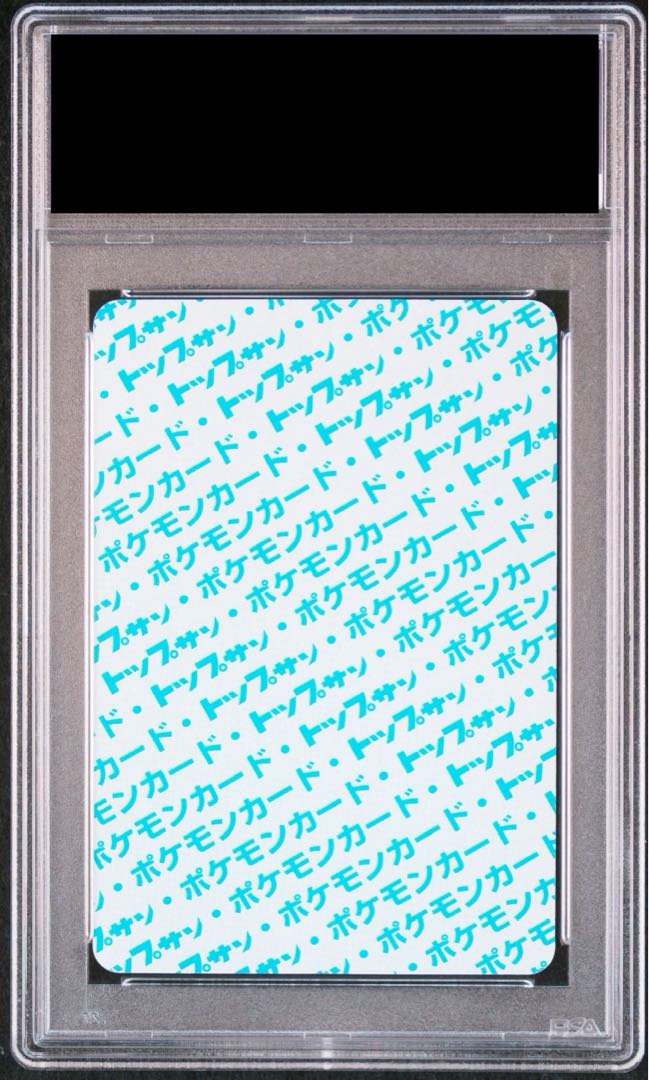 ップサン・
・トップサン・
ード・トップサン・ポ
ンカード・トップサン・ポケ
モンカード・トップサン・ポケモ
ポケモンカード・トップサン・ポケモン
・ポケモンカード・トップサン・ポケ
ン・ポケモンカード・トップサン・
サン・ポケモンカード・トップサン
ップサン・ポケモンカード・トッ
トップサン・ポケモンカード・
ド・トップサン・ポケモンカー
カード・トップサン・ポケモンカ
モンカード・トップサン・ポケモン
ポケモンカード・トップサン・ポケ
・ポケモンカード・トップサン・
ン・ポケモンカード・トップサン
プサン・ポケモンカード・トッ
ップサン・ポケモンカード・
サン・ポケモンカード
・ポケモンカ
ポケモ
PSA